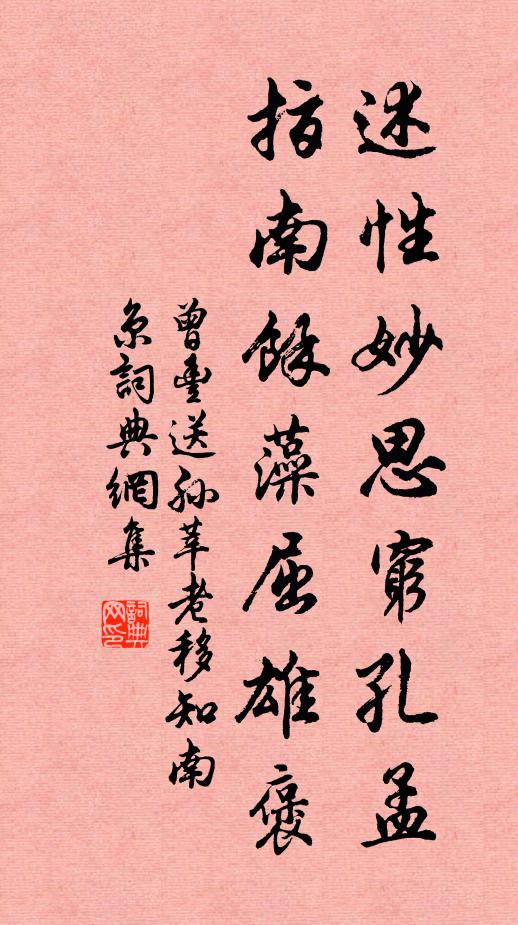 述性妙思窮孔孟
指南餘藻屈雄褒
曾豐送孫莘老移知南
京詞典網集
詞典網印